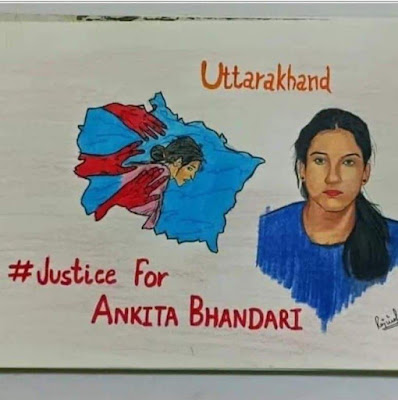 Uttarakhand
#Justice For
ANKITA BHANDARI